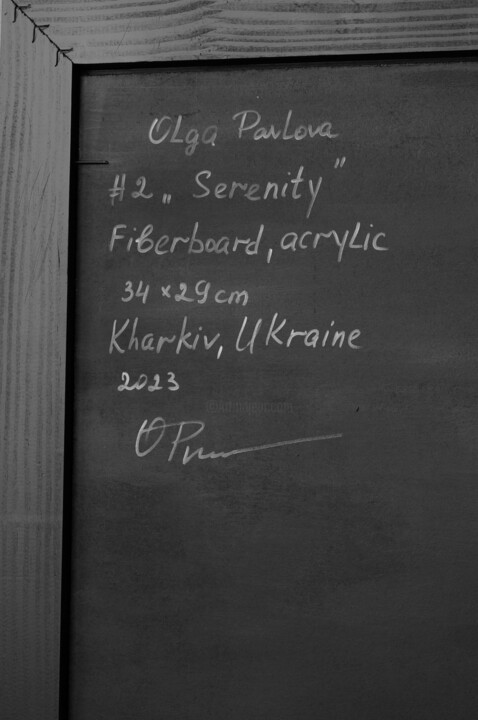 Olga Pavlova
#2 „ Serenity”
Fiberboard, acrylic
34 × 29 cm
Kharkiv, Ukraine
2023